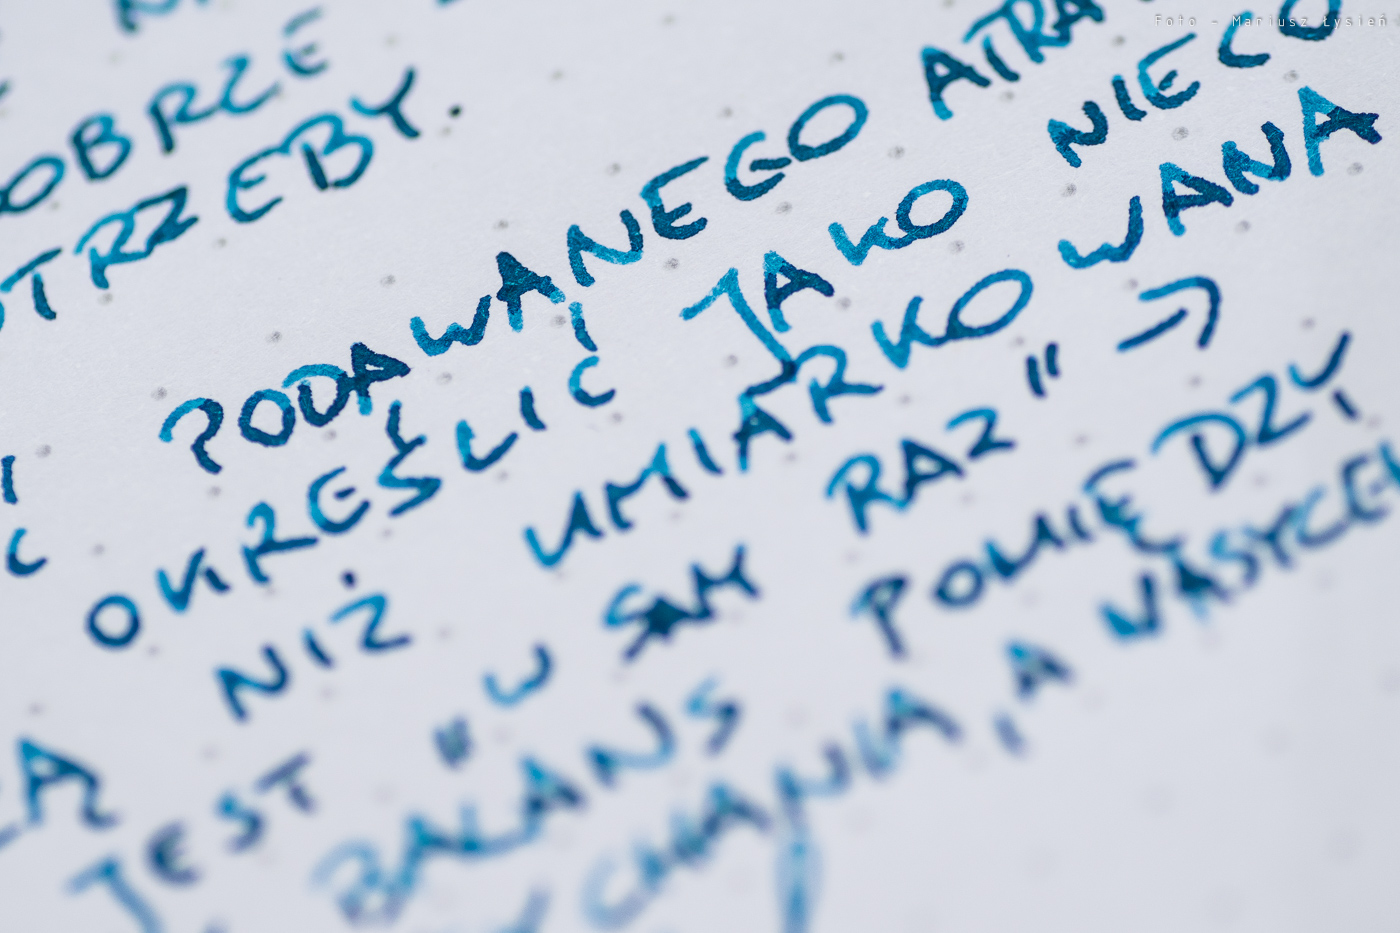 Foto - Mariusz Łysień
OBRZE
TRZEBY.
PODAWANEGO ATRA
OKREŚLIĆ JAKO NIECO
NIŻ UMIARKOWANA
JEST "W SAM RAZ" →
BALANS POMIĘDZY
CHANIA, A WASYCE